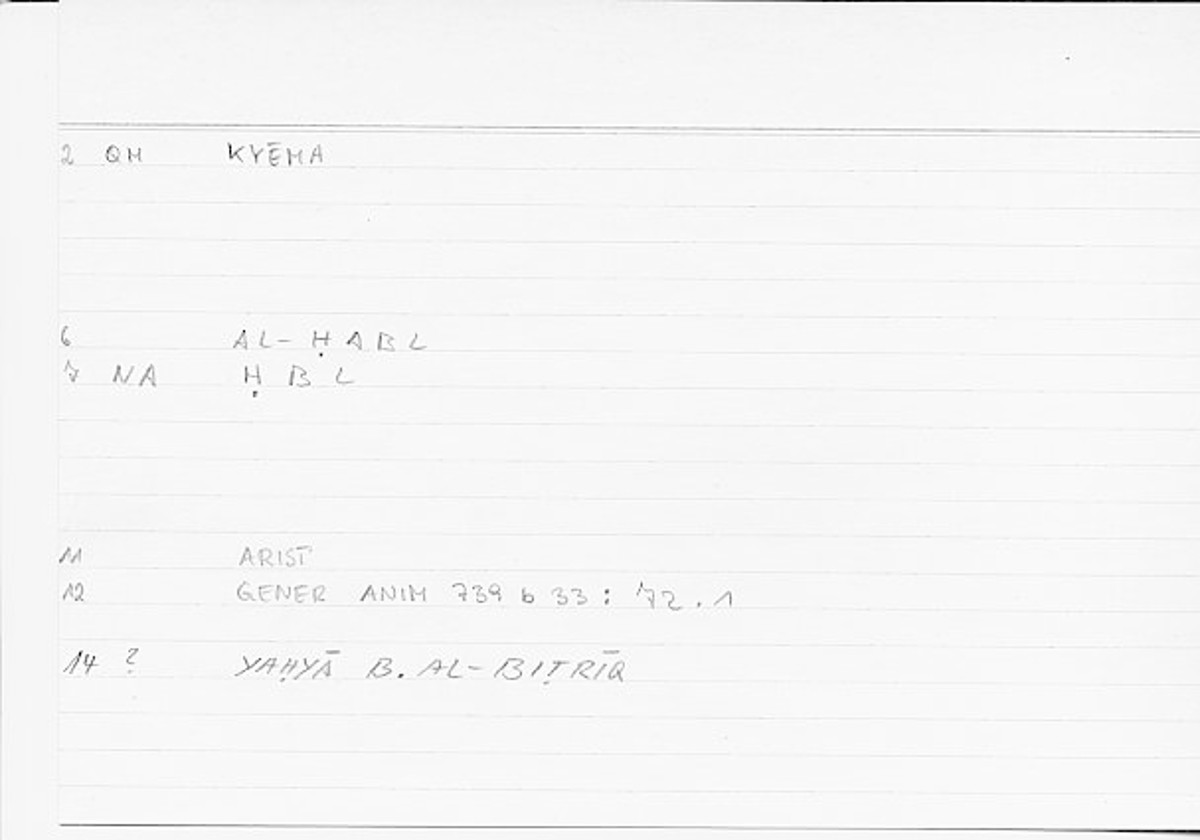 2 QM KYĒMA
6 AL-ḤABL
7 NA ḤBL
11 ARIST
12 GENER ANIM 739 b 33 : 72.1
14 ? YAḤYĀ B. AL-BIṬRĪQ